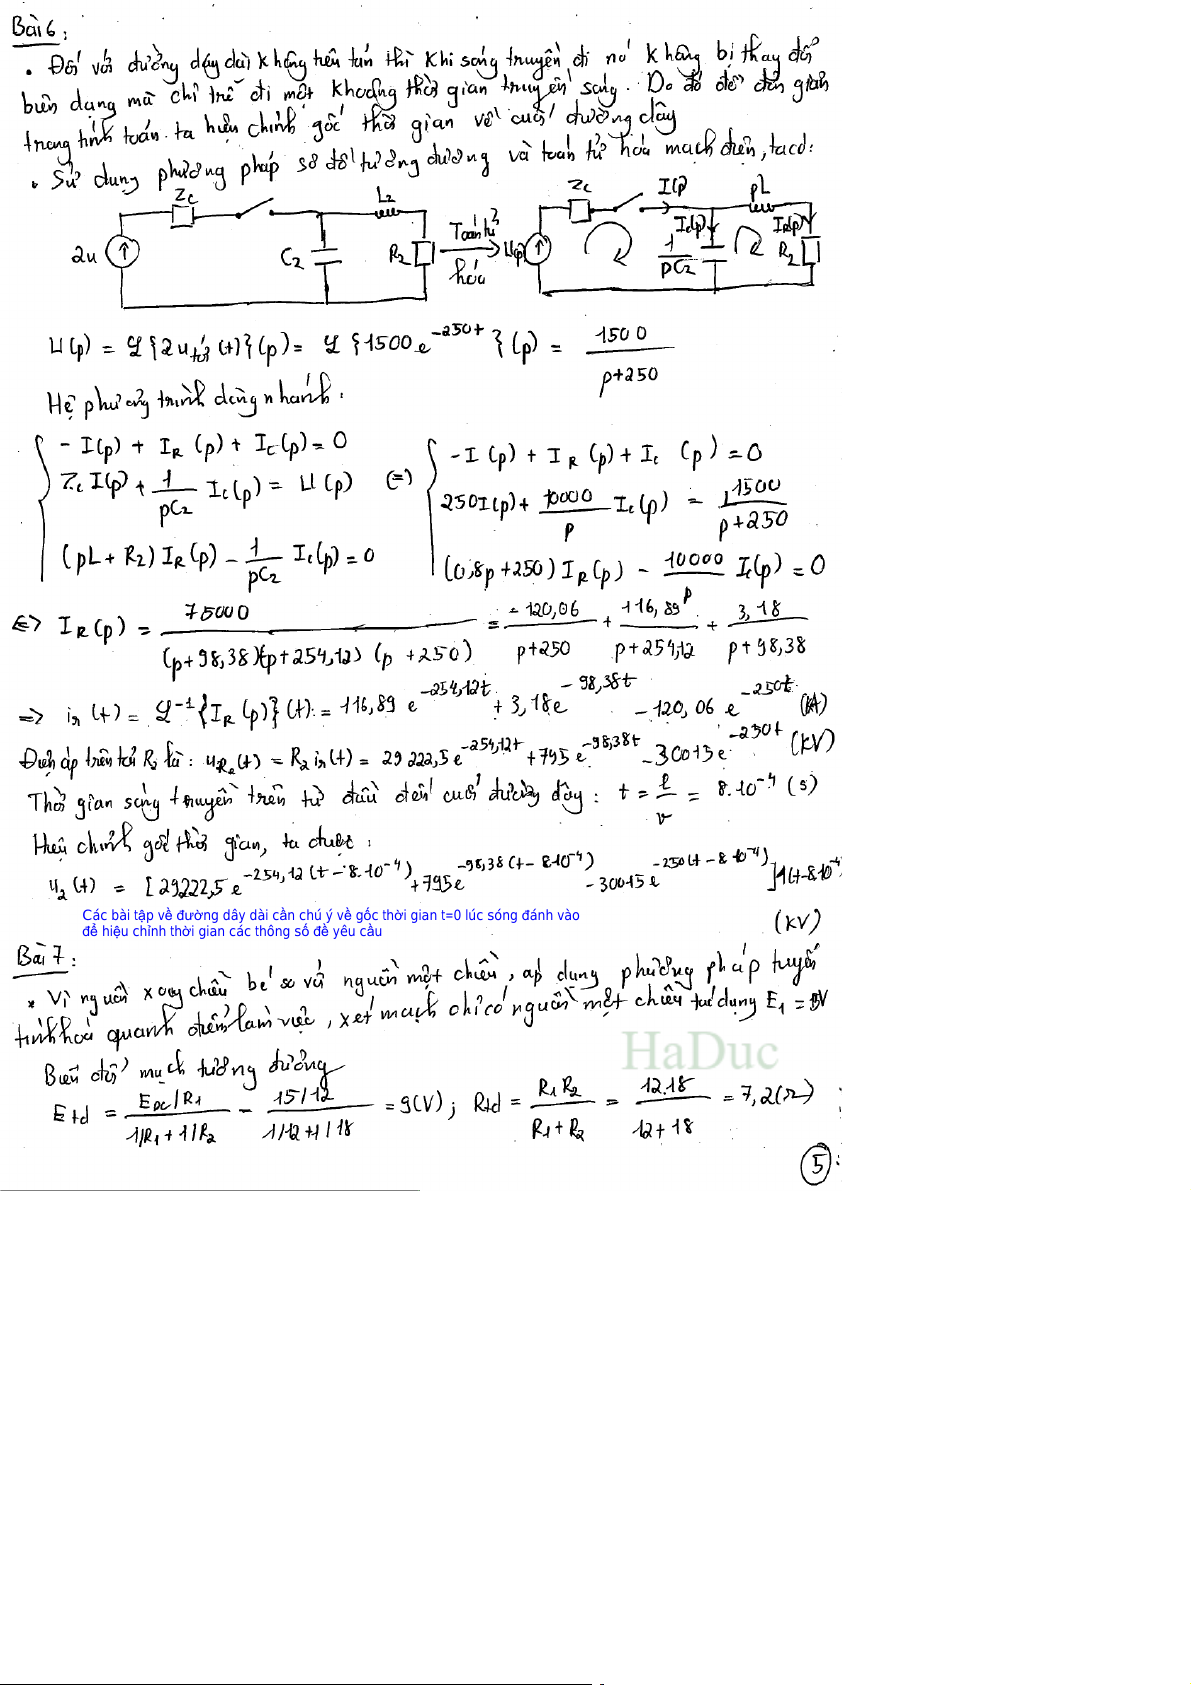 Bài 6:
• Đối với đường dây dài không tiêu tán thì khi sóng truyền đi nó không bị thay đổi
biên dạng mà chỉ trễ đi một khoảng thời gian truyền sóng. Do đó để đơn giản
trong tính toán ta hiệu chỉnh gốc thời gian về cuối đường dây
• Sử dụng phương pháp sơ đồ tương đương và toán tử hóa mạch điện, ta có:
Zc L2 Zc I(p) pL
2u C2 R2 Toán tử hóa U(p) 1/pC2 Ic(p) IR(p) R2
U(p) = ℒ{2utới(t)}(p) = ℒ{1500e^{-250t}}(p) = 1500/(p+250)
Hệ phương trình dòng nhánh:
-I(p) + IR(p) + Ic(p) = 0 (=) -I(p) + IR(p) + Ic(p) = 0
Zc I(p) + 1/(pC2) Ic(p) = U(p) 250I(p) + 10000/p Ic(p) = 1500/(p+250)
(pL + R2) IR(p) - 1/(pC2) Ic(p) = 0 (0,8p+250) IR(p) - 10000/p Ic(p) = 0
<=> IR(p) = 75000/((p+98,38)(p+254,12)(p+250)) = -120,06/(p+250) + 116,89/(p+254,12) + 3,18/(p+98,38)
=> ir(t) = ℒ^{-1}{IR(p)}(t) = 116,89 e^{-254,12t} + 3,18e^{-98,38t} - 120,06 e^{-250t} (kA)
Điện áp trên tải R2 là: uR2(t) = R2 ir(t) = 29222,5e^{-254,12t} + 795e^{-98,38t} - 30015e^{-250t} (KV)
Thời gian sóng truyền trên từ đầu đến cuối đường dây: t = l/v = 8.10^{-4} (s)
Hiệu chỉnh gốc thời gian, ta được:
u2(t) = [29222,5e^{-254,12(t-8.10^{-4})} + 795e^{-98,38(t-8.10^{-4})} - 30015e^{-250(t-8.10^{-4})}]1(t-8.10^{-4}
(KV)
Các bài tập về đường dây dài cần chú ý về gốc thời gian t=0 lúc sóng đánh vào
để hiệu chỉnh thời gian các thông số đề yêu cầu
Bài 7:
* Vì nguồn xoay chiều bé so với nguồn một chiều, áp dụng phương pháp tuyến
tính hoá quanh điểm làm việc, xét mạch chỉ có nguồn một chiều tác dụng E1 = V
HaDuc
Biến đổi mạch tương đương
Etd = (EDC/R1)/(1/R1 + 1/R2) = (15/12)/(1/12+1/18) = 9(V); Rtd = R1R2/(R1+R2) = 12.18/(12+18) = 7,2(Ω)
5